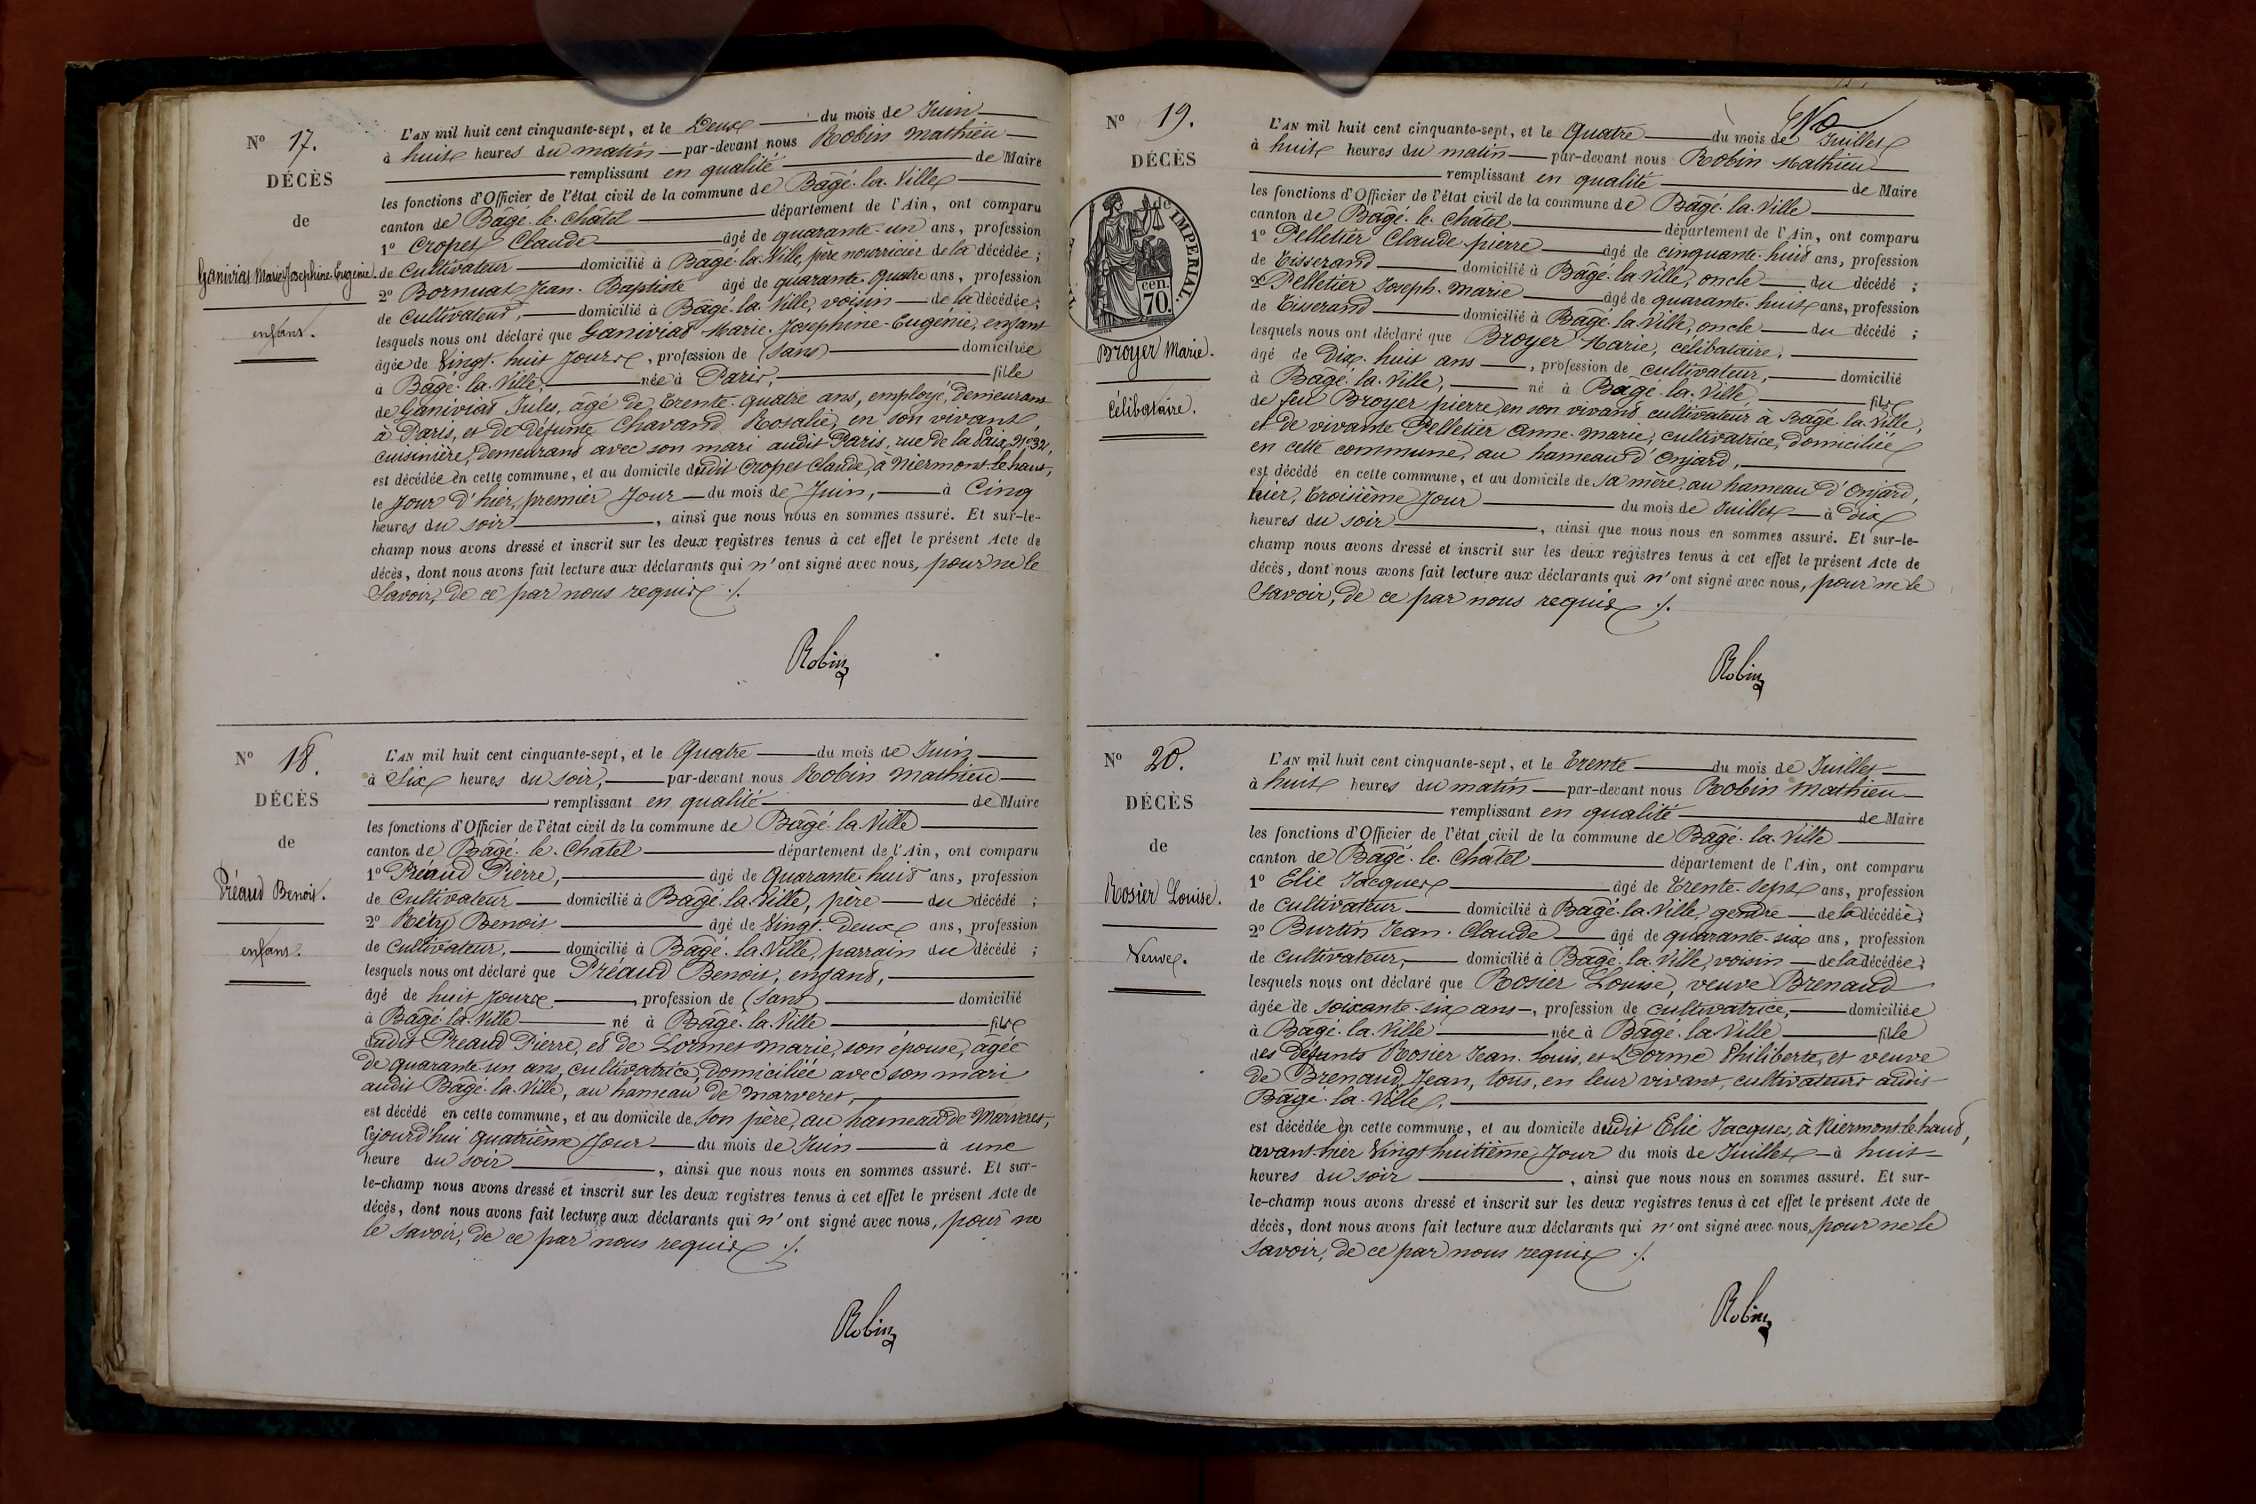 N° 17.
DÉCÈS
de
Ganiviat Marie Josephine Eugénie.
enfant.
L'AN mil huit cent cinquante-sept, et le Deux du mois de Juin
à huit heures du matin par-devant nous Robin Mathieu
remplissant en qualité de Maire
les fonctions d'Officier de l'état civil de la commune de Bâgé-la-Ville
canton de Bâgé-le-Châtel département de l'Ain, ont comparu
1° Cropet Claude âgé de quarante-un ans, profession
de Cultivateur domicilié à Bâgé-la-Ville, père nourricier de la décédée;
2° Bornuat Jean-Baptiste âgé de quarante-quatre ans, profession
de Cultivateur, domicilié à Bâgé-la-Ville, voisin de la décédée;
lesquels nous ont déclaré que Ganiviat Marie-Josephine-Eugénie, enfant
âgée de Vingt-huit Jours, profession de (sans) domiciliée
à Bâgé-la-Ville, née à Paris, fille
de Ganiviat Jules, âgé de trente-quatre ans, employé, demeurant
à Paris, et de défunte Chavand Rosalie, en son vivant
cuisinière, demeurant avec son mari audit Paris, rue de la Paix, N° 32,
est décédée en cette commune, et au domicile dudit Cropet Claude, à Niermont-le-haut,
le Jour d'hier, premier Jour du mois de Juin, à Cinq
heures du soir, ainsi que nous nous en sommes assuré. Et sur-le-
champ nous avons dressé et inscrit sur les deux registres tenus à cet effet le présent Acte de
décès, dont nous avons fait lecture aux déclarants qui n'ont signé avec nous, pour ne le
Savoir, de ce par nous requis ./.
Robin
N° 18.
DÉCÈS
de
Préaud Benoit.
enfant.
L'AN mil huit cent cinquante-sept, et le Quatre du mois de Juin
à Six heures du soir, par-devant nous Robin Mathieu
remplissant en qualité de Maire
les fonctions d'Officier de l'état civil de la commune de Bâgé-la-Ville
canton de Bâgé-le-Châtel département de l'Ain, ont comparu
1° Préaud Pierre, âgé de Quarante-huit ans, profession
de Cultivateur domicilié à Bâgé-la-Ville, père du décédé ;
2° Réty Benoit âgé de Vingt-Deux ans, profession
de Cultivateur, domicilié à Bâgé-la-Ville, parrain du décédé ;
lesquels nous ont déclaré que Préaud Benoit, enfant,
âgé de huit Jours, profession de (sans) domicilié
à Bâgé-la-Ville né à Bâgé-la-Ville fils
dudit Préaud Pierre, et de Lormet Marie, son épouse, âgée
de quarante-un ans, cultivatrice, Domiciliée avec son mari
audit Bâgé-la-Ville, au hameau de Marveret,
est décédé en cette commune, et au domicile de son père, au hameau de Marveret,
Cejourd'hui quatrième Jour du mois de Juin à une
heure du soir, ainsi que nous nous en sommes assuré. Et sur-
le-champ nous avons dressé et inscrit sur les deux registres tenus à cet effet le présent Acte de
décès, dont nous avons fait lecture aux déclarants qui n'ont signé avec nous, pour ne
le savoir, de ce par nous requis ./.
Robin
N° 19.
DÉCÈS
de
IMPERIAL.
cen.
70.
Broyer Marie.
célibataire.
L'AN mil huit cent cinquante-sept, et le Quatre du mois de Juillet
à huit heures du matin par-devant nous Robin Mathieu
remplissant en qualité de Maire
les fonctions d'Officier de l'état civil de la commune de Bâgé-la-Ville
canton de Bâgé-le-Châtel département de l'Ain, ont comparu
1° Pelletier Claude-pierre âgé de cinquante-huit ans, profession
de Tisserand domicilié à Bâgé-la-Ville, oncle du décédé ;
2° Pelletier Joseph-Marie âgé de quarante-huit ans, profession
de Tisserand domicilié à Bâgé-la-Ville, oncle du décédé ;
lesquels nous ont déclaré que Broyer Marie, célibataire,
âgé de Dix-huit ans, profession de cultivateur, domicilié
à Bâgé-la-Ville, né à Bâgé-la-Ville, fils
de feu Broyer pierre, en son vivant cultivateur à Bâgé-la-Ville,
et de vivante Pelletier Anne-Marie, cultivatrice, domiciliée
en cette commune, au hameau d'Onjard,
est décédé en cette commune, et au domicile de sa mère, au hameau d'Onjard,
hier, troisième Jour du mois de Juillet à dix
heures du soir, ainsi que nous nous en sommes assuré. Et sur-le-
champ nous avons dressé et inscrit sur les deux registres tenus à cet effet le présent Acte de
décès, dont nous avons fait lecture aux déclarants qui n'ont signé avec nous, pour ne le
Savoir, de ce par nous requis ./.
Robin
N° 20.
DÉCÈS
de
Rosier Louise.
Veuve.
L'AN mil huit cent cinquante-sept, et le Trente du mois de Juillet
à huit heures du matin par-devant nous Robin Mathieu
remplissant en qualité de Maire
les fonctions d'Officier de l'état civil de la commune de Bâgé-la-Ville
canton de Bâgé-le-Châtel département de l'Ain, ont comparu
1° Elie Jacques âgé de trente-sept ans, profession
de Cultivateur domicilié à Bâgé-la-Ville, gendre de la décédée;
2° Burtin Jean-Claude âgé de quarante-six ans, profession
de Cultivateur, domicilié à Bâgé-la-Ville, voisin de la décédée;
lesquels nous ont déclaré que Rosier Louise, veuve Brenaud
âgée de soixante-six ans, profession de cultivatrice, domiciliée
à Bâgé-la-Ville née à Bâgé-la-Ville fille
des défunts Rosier Jean-Louis, et Dorme Philiberte, et veuve
de Brenaud Jean, tous, en leur vivant, cultivateurs audit
Bâgé-la-Ville,
est décédée en cette commune, et au domicile dudit Elie Jacques, à Niermont-le-haut,
avant-hier Vingt huitième Jour du mois de Juillet à huit
heures du soir, ainsi que nous nous en sommes assuré. Et sur-
le-champ nous avons dressé et inscrit sur les deux registres tenus à cet effet le présent Acte de
décès, dont nous avons fait lecture aux déclarants qui n'ont signé avec nous, pour ne le
savoir, de ce par nous requis ./.
Robin